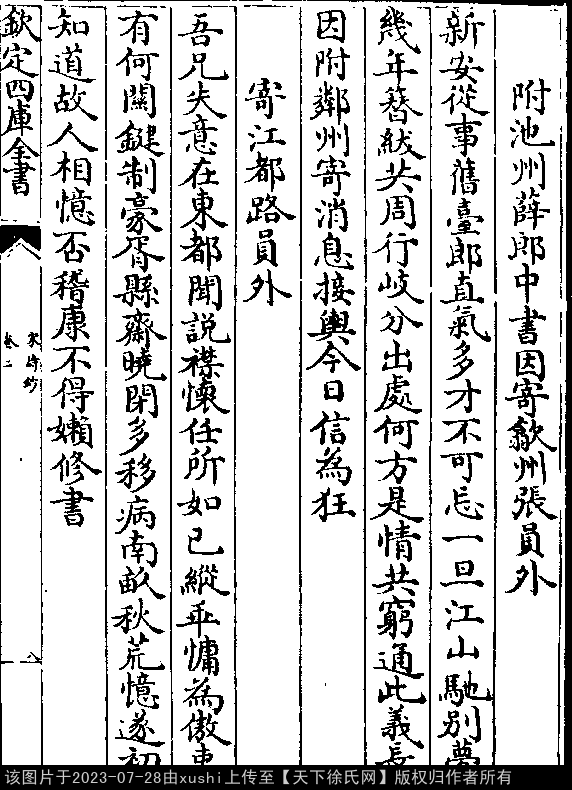 附池州薛郎中書因寄歙州張員外
新安從事舊臺郎直氣多才不可忘一旦江山馳別夢
幾年簪紱共周行岐分出處何方是情共窮通此義長
因附鄰州寄消息接輿今日信為狂
寄江都路員外
吾兄失意在東都聞說襟懷任所如已縱乖慵為傲吏
有何關鍵制豪胥縣齋曉閉多移病南畝秋荒憶遂初
知道故人相憶否稽康不得嬾修書
欽定四庫全書
卷二
八
该图片于2023-07-28由xushi上传至【天下徐氏网】版权归作者所有